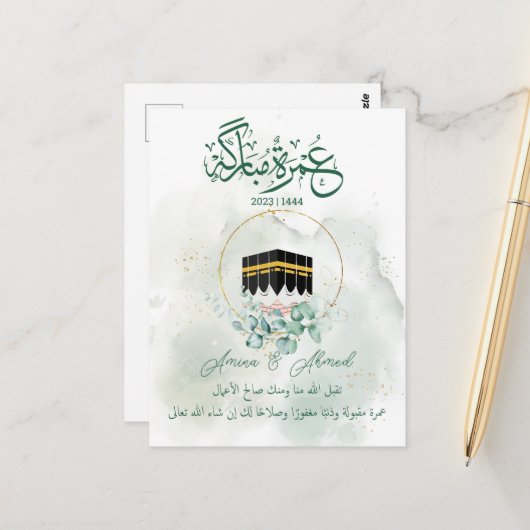 عُمْرَةٌ مُبَارَكَةٌ
2023 | 1444
Amina & Ahmed
تقبل الله منا ومنك صالح الأعمال
عمرة مقبولة وذنبًا مغفورًا وصلاحًا لك إن شاء الله تعالى